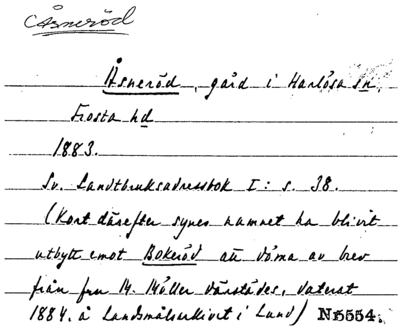 Åsneröd
Åsneröd, gård i Harlösa sn,
Frosta hd
1883.
Sv. Landtbruksadressbok I: s. 38.
(Kort därefter synes namnet ha blivit
utbytt emot Bokeröd att döma av brev
från fru M. Möller därstädes, daterat
1884. å Landsmålsarkivet i Lund) No 5554.